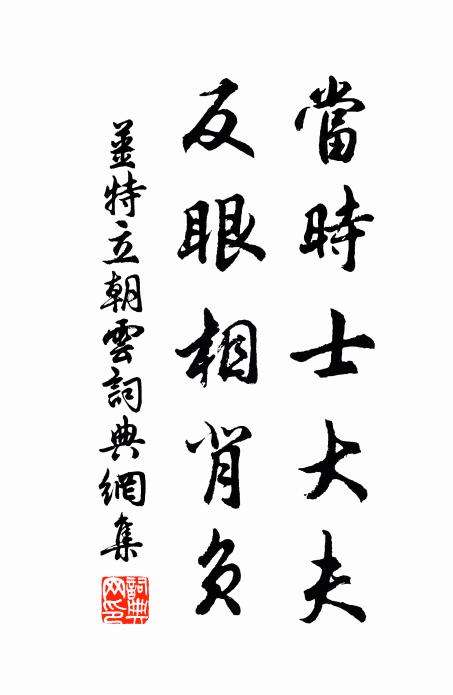 當時士大夫
反眼相背負
姜特立朝雲詞典網集
詞典
網印